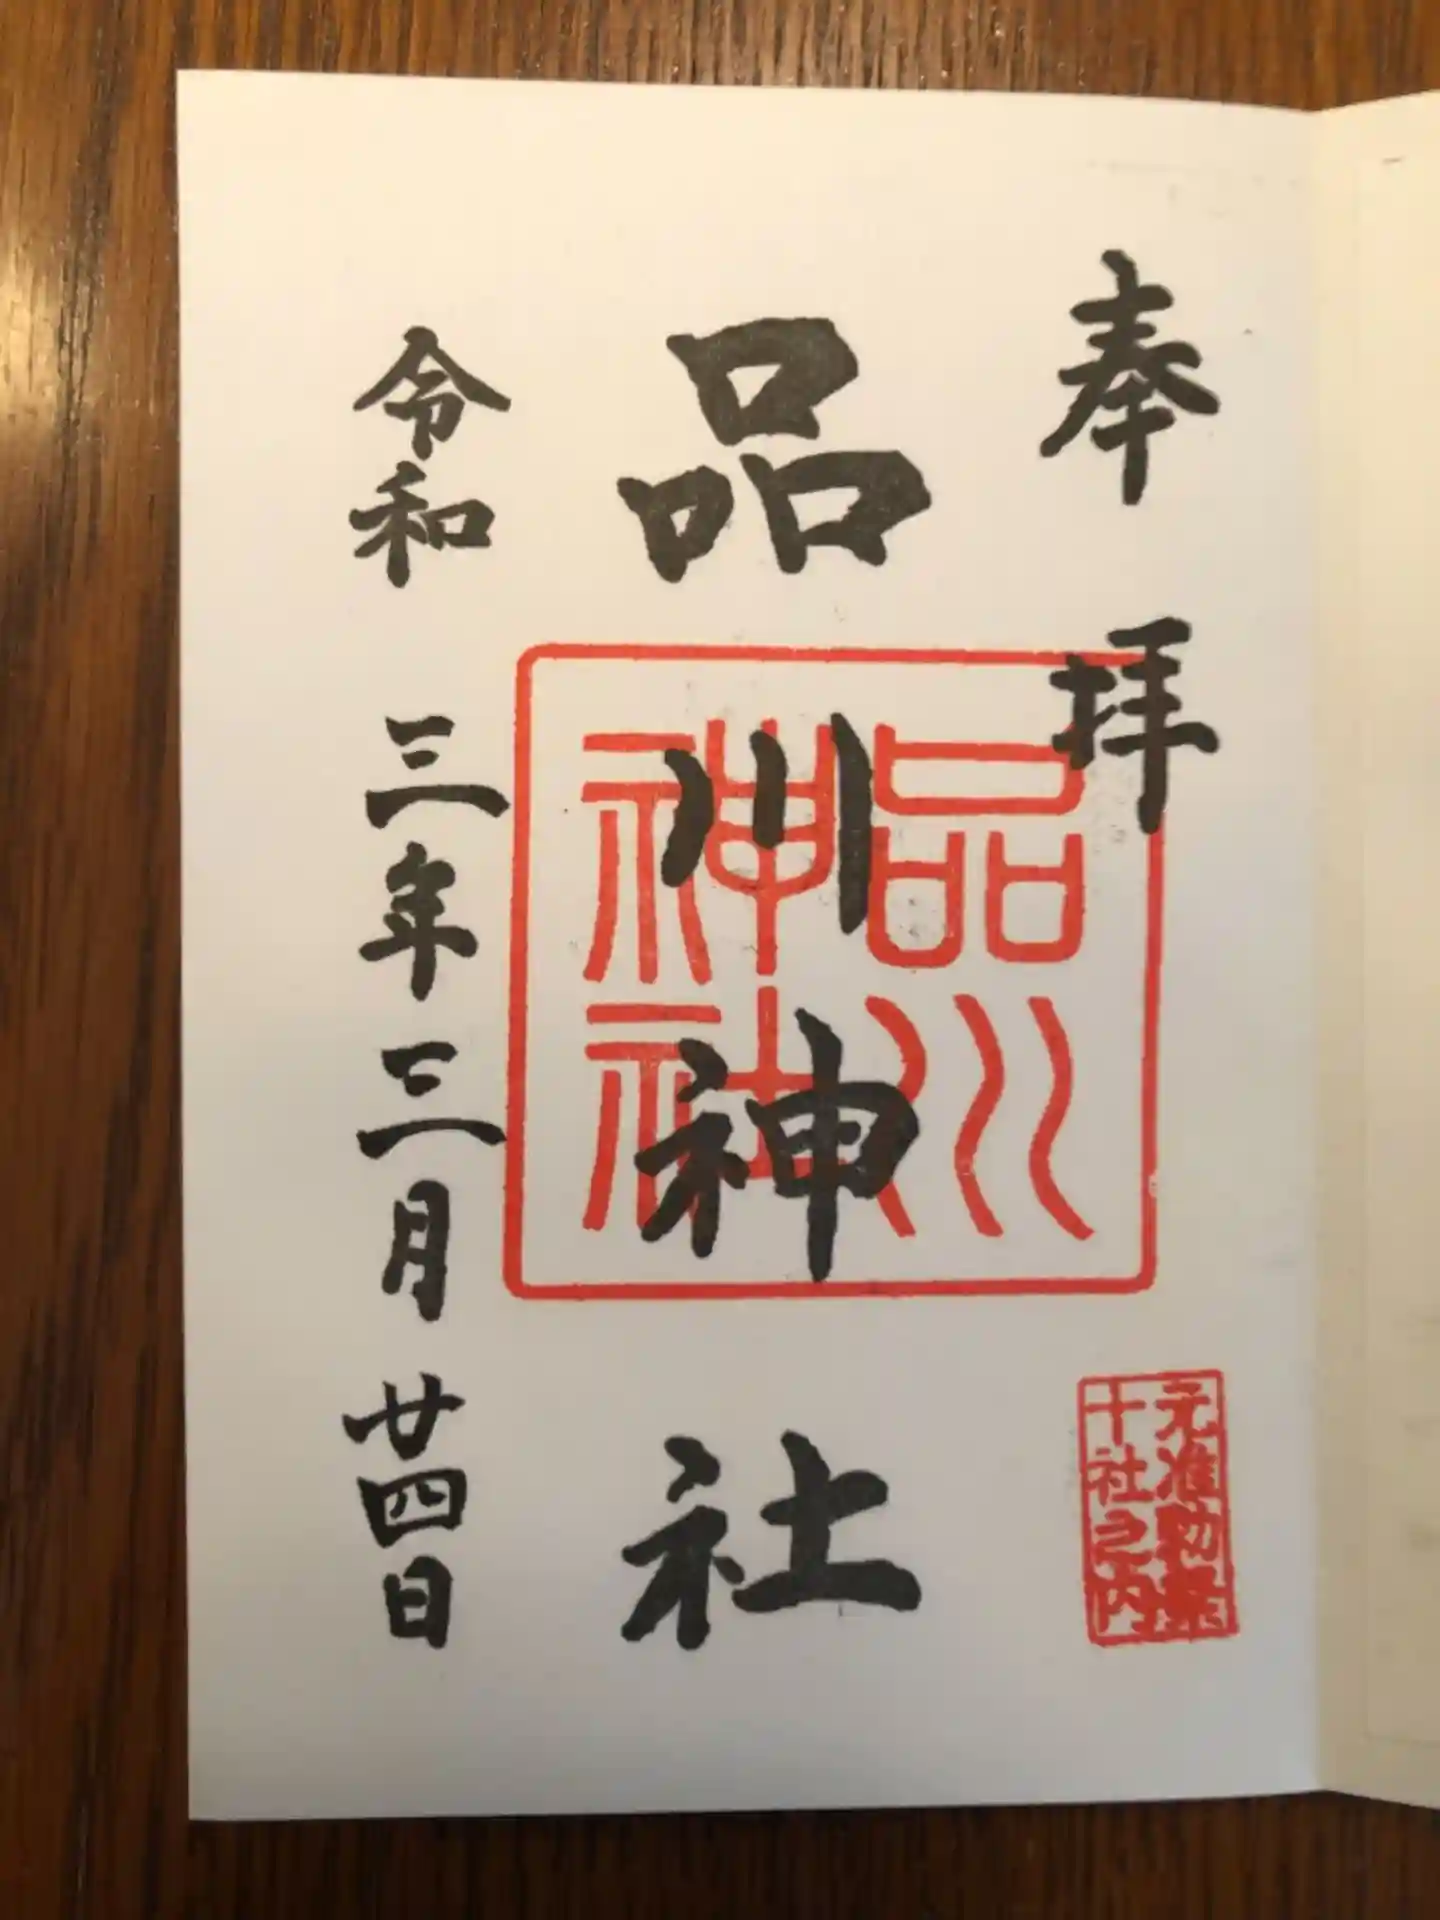 奉拝
品川神社
品川
神社
令和三年三月廿四日
元准勅祭
十社之内